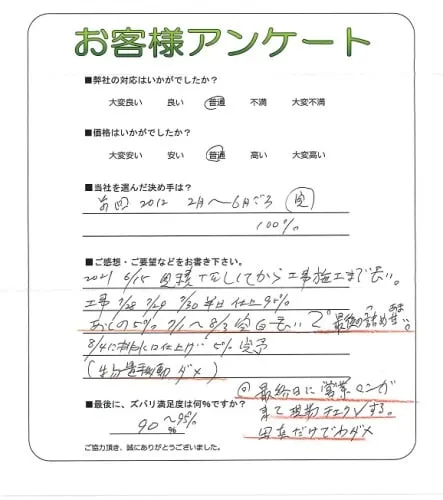 お客様アンケート
■弊社の対応はいかがでしたか？
大変良い 良い 普通 不満 大変不満
■価格はいかがでしたか？
大変安い 安い 普通 高い 大変高い
■当社を選んだ決め手は？
前回 2012 2月〜6月ごろ 完
100%
■ご感想・ご要望などをお書き下さい。
2021 6/15 見積 してから工事施工まで長い。
工事 7/28 7/29 7/30 半日 仕上 95%
あとの5% 7/1〜8/3 空白 長い 最後の詰めが あまい。
8/4に排水口仕上げ 5% 完了
ダメ)
回 最終日に営業マンが
来て現場チェックする。
写真だけでわダメ
■最後に、ズバリ満足度は何%ですか？
90〜95%
%
ご協力頂き、誠にありがとうございました。